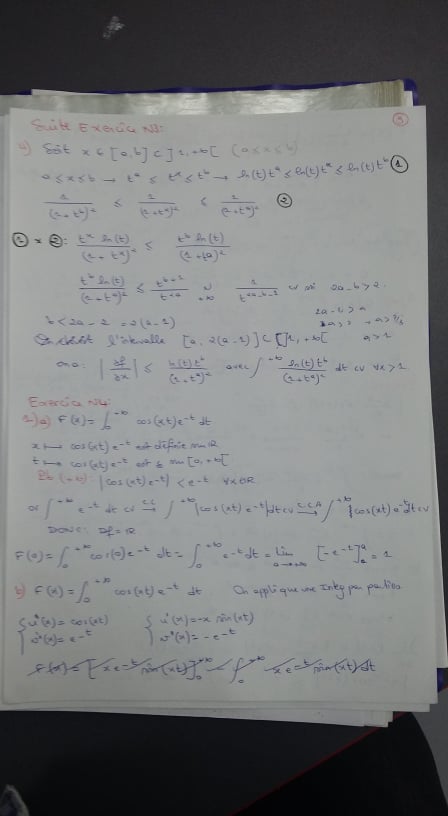 ③
Suite Exercice N3:
4) Soit x ∈ [a,b] ⊂ ]1,+∞[ (a ≤ x ≤ b)
a ≤ x ≤ b → t^a ≤ t^x ≤ t^b → ln(t)t^a ≤ ln(t)t^x ≤ ln(t)t^b ①
1/(1+t^b)² ≤ 1/(1+t^x)² ≤ 1/(1+t^a)² ②
① x ②: t^x ln(t)/(1+t^x)² ≤ t^b ln(t)/(1+t^a)²
t^b ln(t)/(1+t^a)² ≤ t^(b+1)/t^(2a) ∼ +∞ 1/t^(2a-b-1) cv si 2a-b > 2
b < 2a-2 = 2(a-1)
l'intervalle [a, 2(a-1)] ⊂ ]1,+∞[
a > 1
on a: |∂f/∂x| ≤ ln(t)t^b/(1+t^a)² avec ∫^+∞ ln(t)t^b/(1+t^a)² dt cv ∀x > 1
Exercice N4:
1) a) F(x) = ∫_0^+∞ cos(xt)e^-t dt
x ↦ cos(xt)e^-t est définie sur ℝ
t ↦ cos(xt)e^-t est sur [0,+∞[
Pb (+∞): |cos(xt)e^-t| < e^-t ∀x∈ℝ
or ∫_0^+∞ e^-t dt cv → ∫_0^+∞ |cos(xt)e^-t|dt cv → ∫_0^+∞ cos(xt)e^-t dt cv
DONC: Df = ℝ
F(0) = ∫_0^+∞ cos(0)e^-t dt = ∫_0^+∞ e^-t dt = lim [-e^-t]_0^a = 1
b) F(x) = ∫_0^+∞ cos(xt)e^-t dt. On applique une Integ par parties
{ u(x) = cos(xt) { u'(x) = -x sin(xt)
{ v'(x) = e^-t { v(x) = -e^-t
F(x) = [x e^-t sin(xt)]_0^+∞ - ∫_0^+∞ x e^-t sin(xt) dt